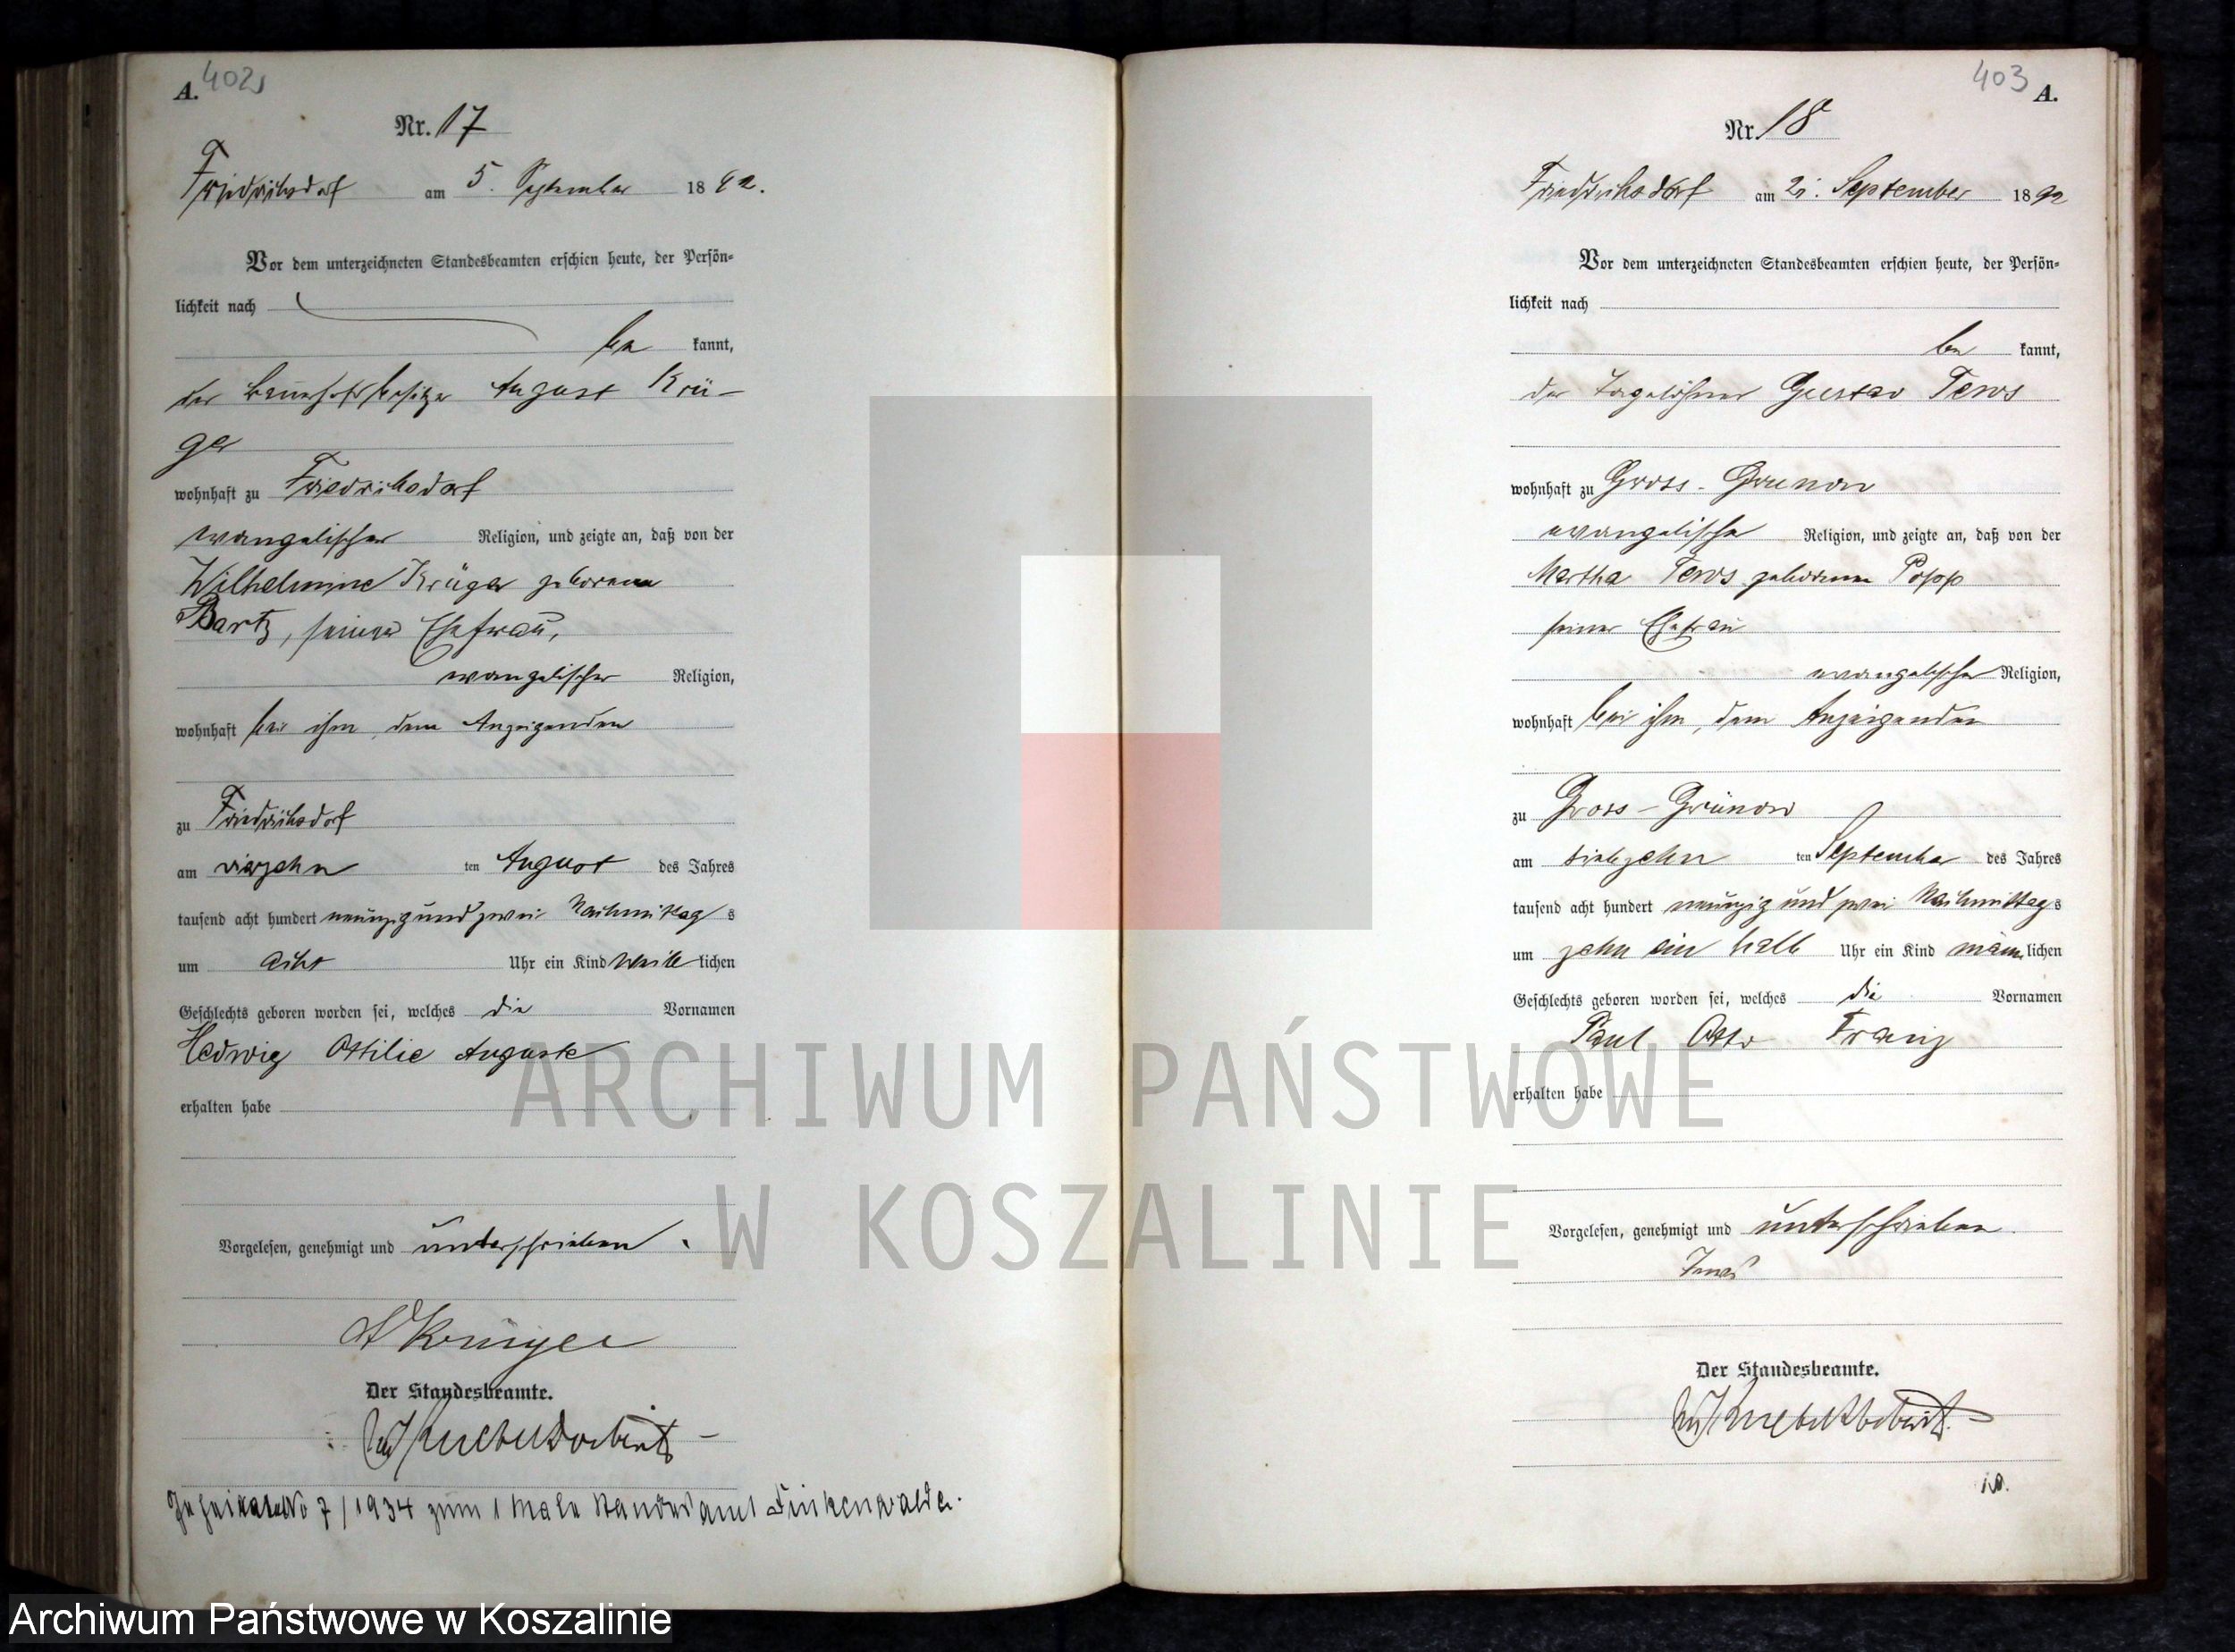 402
A.
Nr. 17
Friedrichsdorf am 5. September 1892.
Vor dem unterzeichneten Standesbeamten erschien heute, der Persön-
lichkeit nach
be kannt,
der Bauerhofsbesitzer August Krü-
ger
wohnhaft zu Friedrichsdorf
evangelischer Religion, und zeigte an, daß von der
Wilhelmine Krüger geborene
Bartz, seiner Ehefrau,
evangelischer Religion,
wohnhaft bei ihm, dem Anzeigenden
zu Friedrichsdorf
am vierzehn ten August des Jahres
tausend acht hundert neunzig und zwei Nachmittag s
um acht Uhr ein Kind weib lichen
Geschlechts geboren worden sei, welches die Vornamen
Hedwig Ottilie Auguste
erhalten habe
Vorgelesen, genehmigt und unterschrieben.
A Krüger
Der Standesbeamte.
No 7/1934 zum 1 Male Standesamt Finkenwalde.
403
A.
Nr. 18
Friedrichsdorf am 21. September 1892
Vor dem unterzeichneten Standesbeamten erschien heute, der Persön-
lichkeit nach
be kannt,
der Tagelöhner Gustav Tews
wohnhaft zu Gross-Grunow
evangelischer Religion, und zeigte an, daß von der
Martha Tews geborenen Popp
seiner Ehefrau
evangelischer Religion,
wohnhaft bei ihm, dem Anzeigenden
zu Gross-Grünow
am siebzehn ten September des Jahres
tausend acht hundert neunzig und zwei Nachmittag s
um zehn ein halb Uhr ein Kind männ lichen
Geschlechts geboren worden sei, welches die Vornamen
Paul Otto Franz
erhalten habe
Vorgelesen, genehmigt und unterschrieben.
Tews
Der Standesbeamte.
ARCHIWUM PAŃSTWOWE
W KOSZALINIE
Archiwum Państwowe w Koszalinie